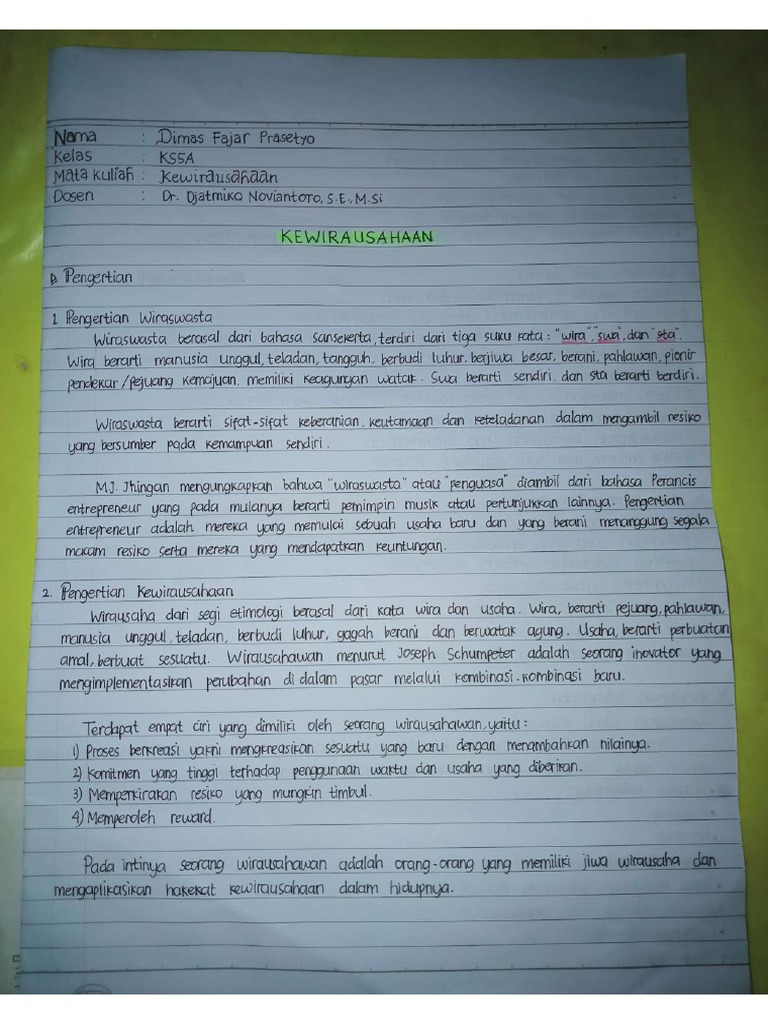 Nama : Dimas Fajar Prasetyo
Kelas : KS5A
Mata kuliah : Kewirausahaan
Dosen : Dr. Djatmiko Noviantoro, S.E., M.Si
KEWIRAUSAHAAN
Pengertian
1. Pengertian Wiraswasta
Wiraswasta berasal dari bahasa sansekerta, terdiri dari tiga suku kata : "wira" "swa", dan "sta".
Wira berarti manusia unggul, teladan, tangguh, berbudi luhur, berjiwa besar, berani, pahlawan, pionir
pendekar/pejuang kemajuan, memiliki keagungan watak. Swa berarti sendiri, dan sta berarti berdiri.
Wiraswasta berarti sifat-sifat keberanian, keutamaan dan keteladanan dalam mengambil resiko
yang bersumber pada kemampuan sendiri.
M.J. Jhingan mengungkapkan bahwa "wiraswasta" atau "penguasa" diambil dari bahasa Perancis
entrepreneur yang pada mulanya berarti pemimpin musik atau pertunjukkan lainnya. Pengertian
entrepreneur adalah mereka yang memulai sebuah usaha baru dan yang berani menanggung segala
macam resiko serta mereka yang mendapatkan keuntungan.
2. Pengertian Kewirausahaan
Wirausaha dari segi etimologi berasal dari kata wira dan usaha. Wira, berarti pejuang, pahlawan,
manusia unggul, teladan, berbudi luhur, gagah berani dan berwatak agung. Usaha, berarti perbuatan
amal, berbuat sesuatu. Wirausahawan menurut Joseph Schumpeter adalah seorang inovator yang
mengimplementasikan perubahan di dalam pasar melalui kombinasi-kombinasi baru.
Terdapat empat ciri yang dimiliki oleh seorang wirausahawan, yaitu :
1) Proses berkreasi yakni mengkreasikan sesuatu yang baru dengan menambahkan nilainya.
2) Komitmen yang tinggi terhadap penggunaan waktu dan usaha yang diberikan.
3) Memperkirakan resiko yang mungkin timbul.
4) Memperoleh reward.
Pada intinya seorang wirausahawan adalah orang-orang yang memiliki jiwa wirausaha dan
mengaplikasikan hakekat kewirausahaan dalam hidupnya.